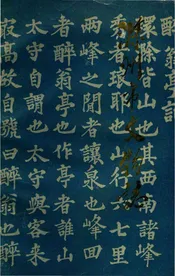 醉翁亭記
環滁皆山也其西南諸峰
秀者琅琊也山行六七里
兩峰之間者讓泉也峰回
者醉翁亭也作亭者誰山
太守自謂也太守與客來
寂高故自號曰醉翁也醉